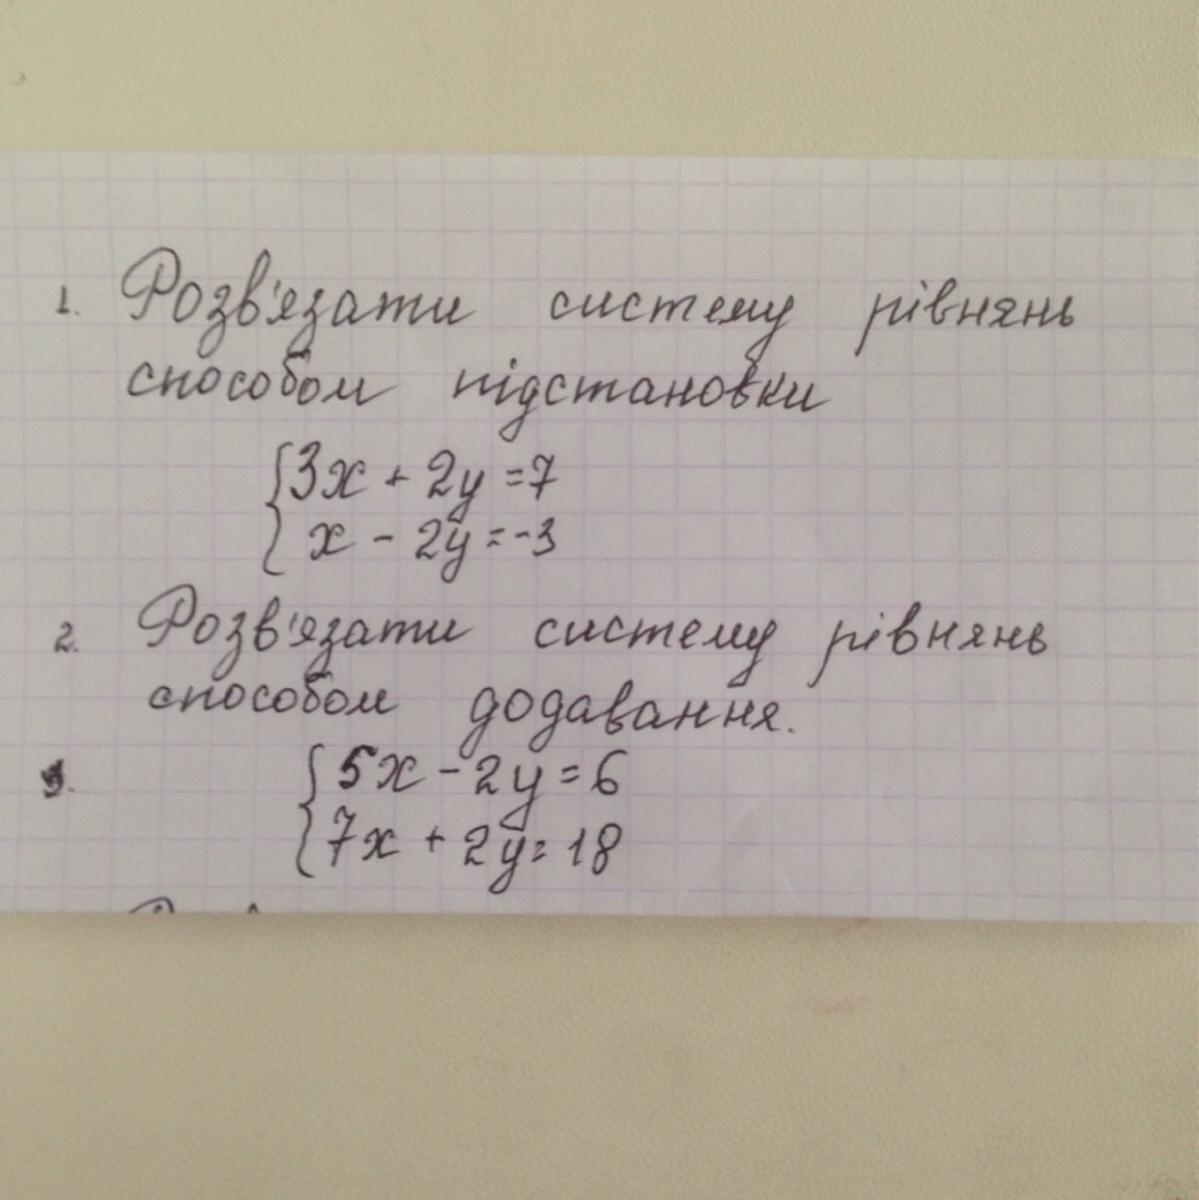 1. Розв'язати систему рівнянь
способом підстановки
3x + 2y = 7
x - 2y = -3
2. Розв'язати систему рівнянь
способом додавання.
5x - 2y = 6
7x + 2y = 18